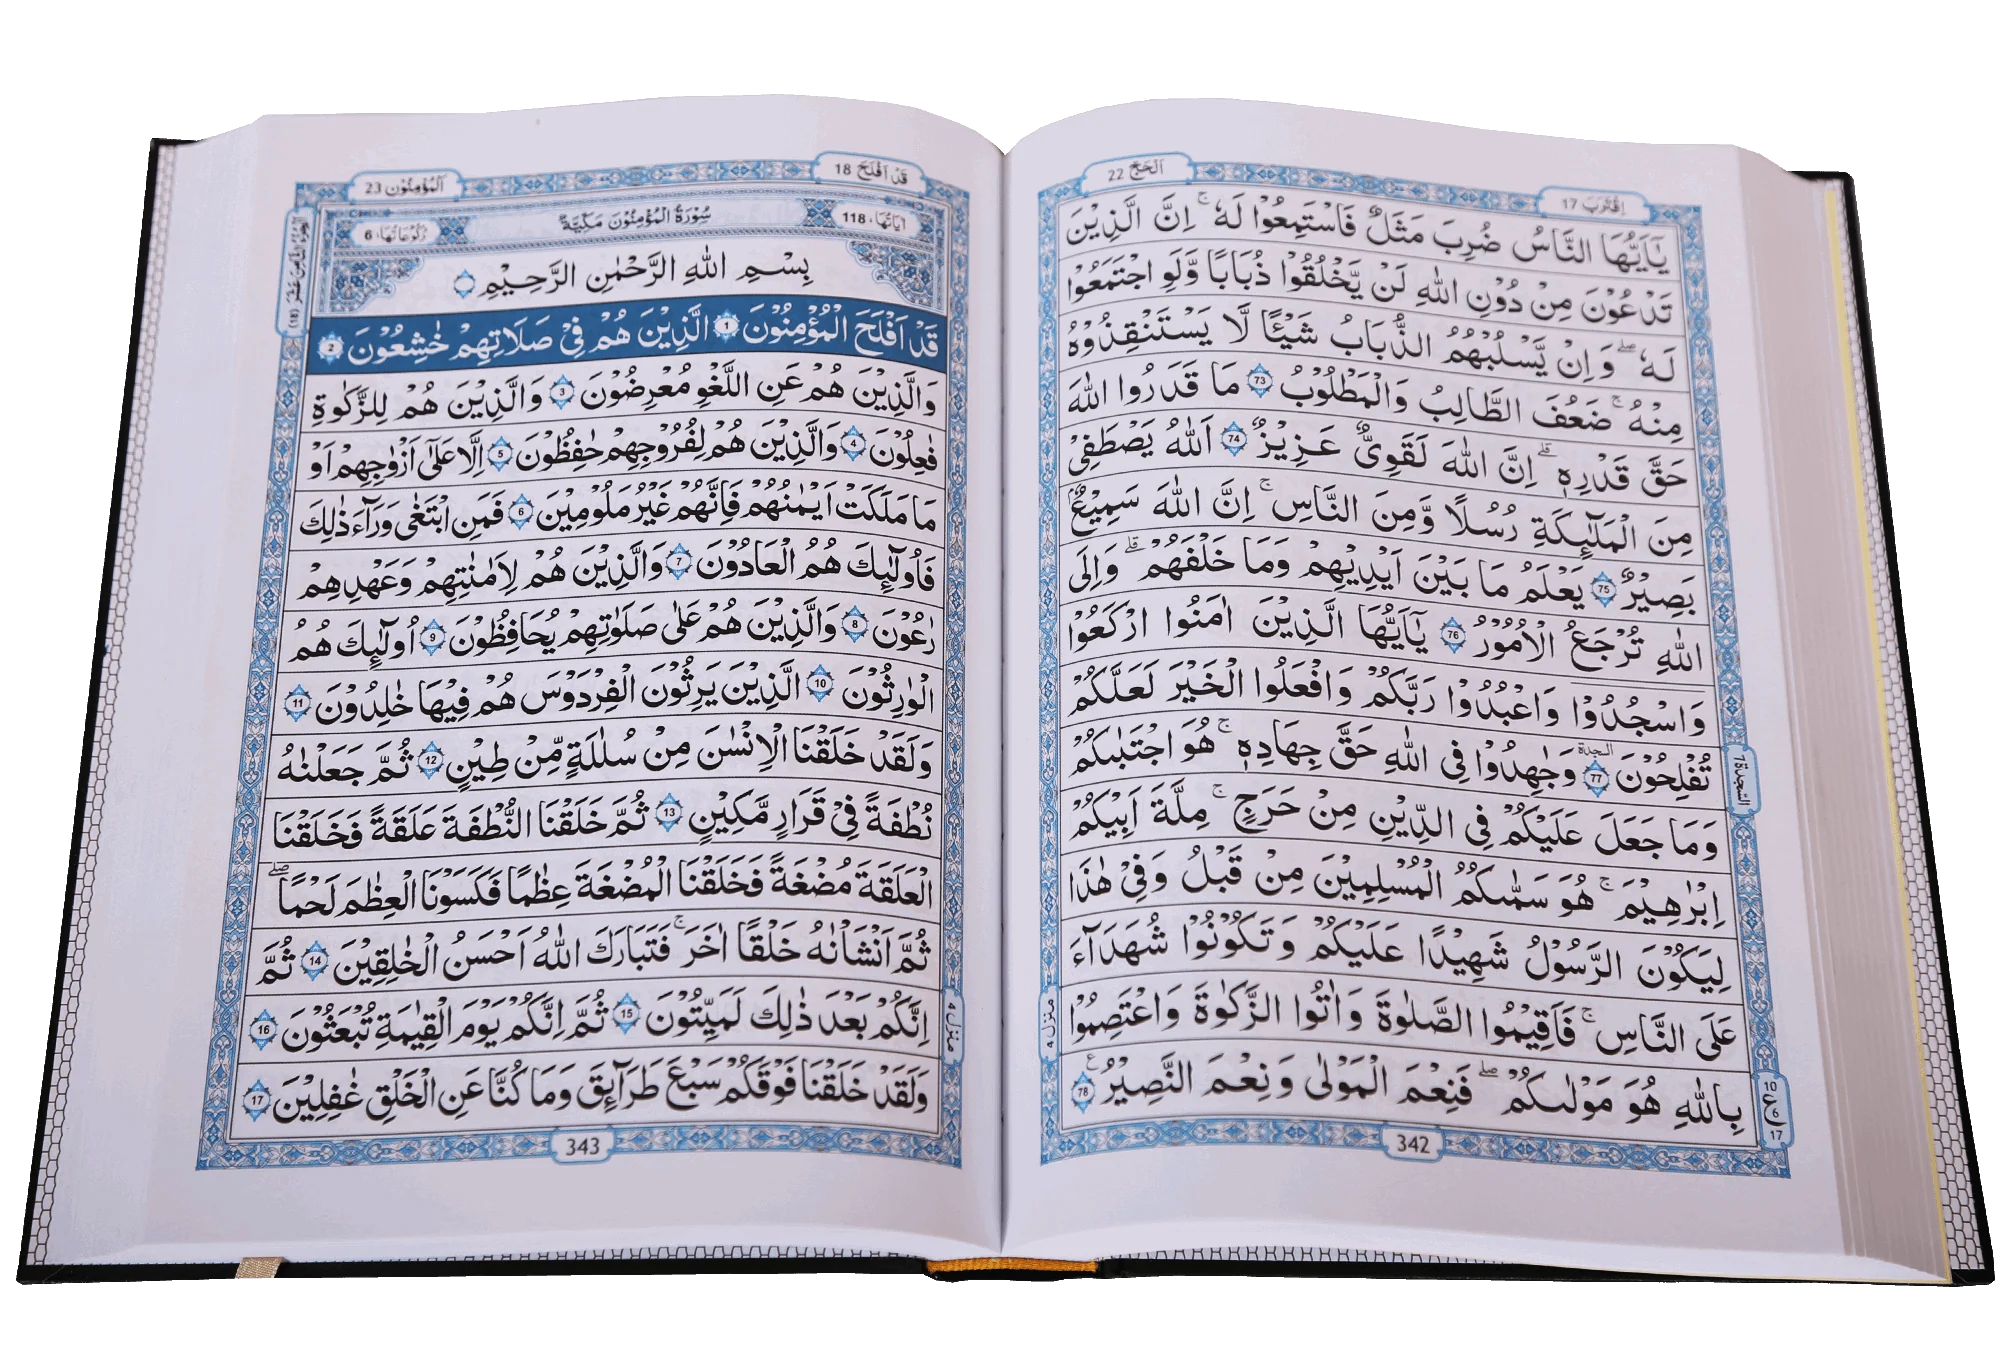 اَلْحَجّ 22
اِقْتَرَبَ 17
يٰۤاَيُّهَا النَّاسُ ضُرِبَ مَثَلٌ فَاسْتَمِعُوْا لَهٗ ؕ اِنَّ الَّذِيْنَ
تَدْعُوْنَ مِنْ دُوْنِ اللّٰهِ لَنْ يَّخْلُقُوْا ذُبَابًا وَّلَوِ اجْتَمَعُوْا
لَهٗ ؕ وَاِنْ يَّسْلُبْهُمُ الذُّبَابُ شَيْـًٔا لَّا يَسْتَنْقِذُوْهُ
مِنْهُ ؕ ضَعُفَ الطَّالِبُ وَالْمَطْلُوْبُ 73 مَا قَدَرُوا اللّٰهَ
حَقَّ قَدْرِهٖ ؕ اِنَّ اللّٰهَ لَقَوِيٌّ عَزِيْزٌ 74 اَللّٰهُ يَصْطَفِيْ
مِنَ الْمَلٰٓئِكَةِ رُسُلًا وَّمِنَ النَّاسِ ؕ اِنَّ اللّٰهَ سَمِيْعٌۢ
بَصِيْرٌ 75 يَعْلَمُ مَا بَيْنَ اَيْدِيْهِمْ وَمَا خَلْفَهُمْ ؕ وَاِلَى
اللّٰهِ تُرْجَعُ الْاُمُوْرُ 76 يٰۤاَيُّهَا الَّذِيْنَ اٰمَنُوا ارْكَعُوْا
وَاسْجُدُوْا وَاعْبُدُوْا رَبَّكُمْ وَافْعَلُوا الْخَيْرَ لَعَلَّكُمْ
تُفْلِحُوْنَ 77 وَجٰهِدُوْا فِي اللّٰهِ حَقَّ جِهَادِهٖ ؕ هُوَ اجْتَبٰىكُمْ
السجدة 7
وَمَا جَعَلَ عَلَيْكُمْ فِي الدِّيْنِ مِنْ حَرَجٍ ؕ مِلَّةَ اَبِيْكُمْ
اِبْرٰهِيْمَ ؕ هُوَ سَمّٰىكُمُ الْمُسْلِمِيْنَ مِنْ قَبْلُ وَفِيْ هٰذَا
لِيَكُوْنَ الرَّسُوْلُ شَهِيْدًا عَلَيْكُمْ وَتَكُوْنُوْا شُهَدَآءَ
عَلَى النَّاسِ ۚ فَاَقِيْمُوا الصَّلٰوةَ وَاٰتُوا الزَّكٰوةَ وَاعْتَصِمُوْا
منزل 4
بِاللّٰهِ هُوَ مَوْلٰىكُمْ ۚ فَنِعْمَ الْمَوْلٰى وَنِعْمَ النَّصِيْرُ 78
10
ع 6
17
342
قَدْ اَفْلَحَ 18
اَلْمُؤْمِنُوْن 23
اٰيَاتُهَا، 118
سُوْرَةُ الْمُؤْمِنُوْنَ مَكِّيَّةٌ
رُكُوْعَاتُهَا، 6
بِسْمِ اللّٰهِ الرَّحْمٰنِ الرَّحِيْمِ
الجزء الثامن عشر (18)
قَدْ اَفْلَحَ الْمُؤْمِنُوْنَ 1 الَّذِيْنَ هُمْ فِيْ صَلَاتِهِمْ خٰشِعُوْنَ 2
وَالَّذِيْنَ هُمْ عَنِ اللَّغْوِ مُعْرِضُوْنَ 3 وَالَّذِيْنَ هُمْ لِلزَّكٰوةِ
فٰعِلُوْنَ 4 وَالَّذِيْنَ هُمْ لِفُرُوْجِهِمْ حٰفِظُوْنَ 5 اِلَّا عَلٰٓى اَزْوٰجِهِمْ اَوْ
مَا مَلَكَتْ اَيْمٰنُهُمْ فَاِنَّهُمْ غَيْرُ مَلُوْمِيْنَ 6 فَمَنِ ابْتَغٰى وَرَآءَ ذٰلِكَ
فَاُولٰٓئِكَ هُمُ الْعَادُوْنَ 7 وَالَّذِيْنَ هُمْ لِاَمٰنٰتِهِمْ وَعَهْدِهِمْ
رٰعُوْنَ 8 وَالَّذِيْنَ هُمْ عَلٰى صَلَوٰتِهِمْ يُحَافِظُوْنَ 9 اُولٰٓئِكَ هُمُ
الْوٰرِثُوْنَ 10 الَّذِيْنَ يَرِثُوْنَ الْفِرْدَوْسَ هُمْ فِيْهَا خٰلِدُوْنَ 11
وَلَقَدْ خَلَقْنَا الْاِنْسٰنَ مِنْ سُلٰلَةٍ مِّنْ طِيْنٍ 12 ثُمَّ جَعَلْنٰهُ
نُطْفَةً فِيْ قَرَارٍ مَّكِيْنٍ 13 ثُمَّ خَلَقْنَا النُّطْفَةَ عَلَقَةً فَخَلَقْنَا
الْعَلَقَةَ مُضْغَةً فَخَلَقْنَا الْمُضْغَةَ عِظٰمًا فَكَسَوْنَا الْعِظٰمَ لَحْمًا ۗ
ثُمَّ اَنْشَاْنٰهُ خَلْقًا اٰخَرَ ؕ فَتَبَارَكَ اللّٰهُ اَحْسَنُ الْخٰلِقِيْنَ 14 ثُمَّ
اِنَّكُمْ بَعْدَ ذٰلِكَ لَمَيِّتُوْنَ 15 ثُمَّ اِنَّكُمْ يَوْمَ الْقِيٰمَةِ تُبْعَثُوْنَ 16
منزل 4
وَلَقَدْ خَلَقْنَا فَوْقَكُمْ سَبْعَ طَرَآئِقَ وَمَا كُنَّا عَنِ الْخَلْقِ غٰفِلِيْنَ 17
343